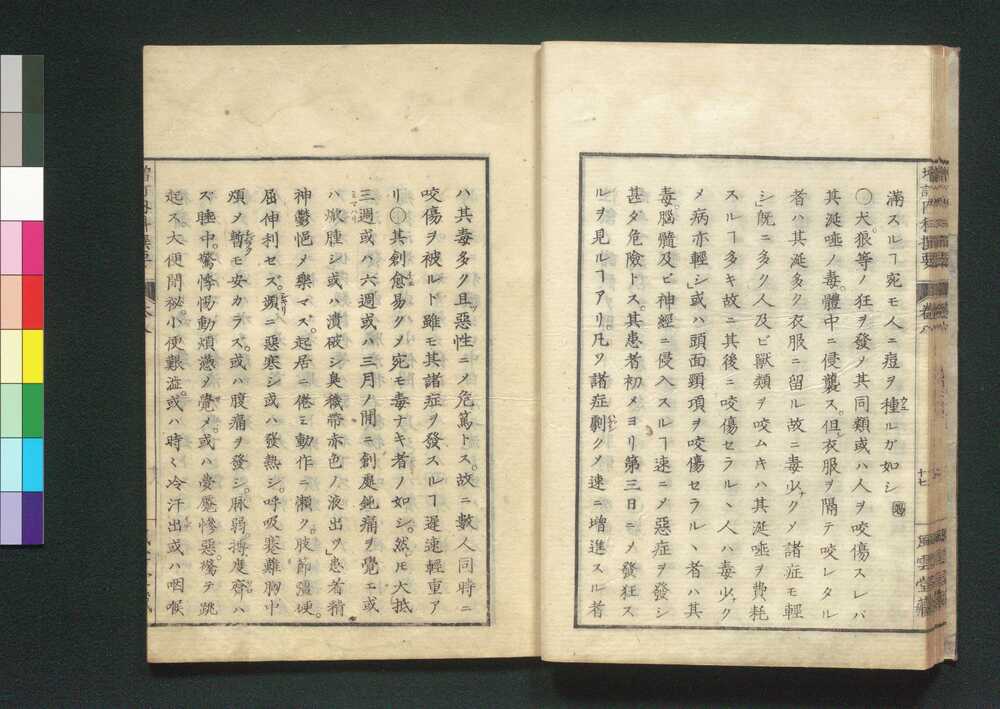 滿スルヿ宛モ人ニ痘ヲ種ルガ如シ
〇犬狼等ノ狂ヲ發ノ其同類或ハ人ヲ咬傷スレバ
其涎唾ノ毒體中ニ侵襲ス。但衣服ヲ隔テ咬レタル
者ハ其涎多ク衣服ニ留ル故ニ毒少クメ諸症モ輕
シ」旣ニ多ク人及ビ獸類ヲ咬ムキハ其涎唾ヲ費耗
スルヿ多キ故ニ其後ニ咬傷セラルヽ人ハ毒少ク
メ病亦輕シ」或ハ頭面頸項ヲ咬傷セラルヽ者ハ其
毒腦髓及ビ神經ニ侵入スルヿ速ニメ惡症ヲ發シ
甚タ危險トス。其患者初メヨリ第三日ニメ發狂ス
ルヲ見ルヿアリ。凡ソ諸症劇クメ速ニ增進スル者
ハ其毒多ク且ツ惡性ニメ危篤トス。故ニ數人同時ニ
咬傷ヲ被ルト雖モ其諸症ヲ發スルヿ遲速輕重ア
リ〇其創愈易クメ宛モ毒ナキ者ノ如シ。然ノ𪜈大抵
三週或ハ六週或ハ三月ノ間ニ創處鈍痛ヲ覺エ或
ハ焮腫シ或ハ潰破シ臭穢帶赤色ノ液出ヅ」患者稍
神鬱悒メ樂マズ。起居ニ倦ミ動作ニ懶ク。肢節强硬。
屈伸利セズ。瀕ニ惡寒シ或ハ發熱シ。呼吸窘難胸中
煩メ暫モ安カラズ。或ハ腹痛ヲ發シ。脉弱。搏應齊ハ
ズ睡中。驚悸惕動煩懣メ覺メ。或ハ
起ス。大便閉祕。小便艱澁。或ハ時々冷汗出或ハ咽喉
增訂内科撰要
卷八
十七
風雲堂藏